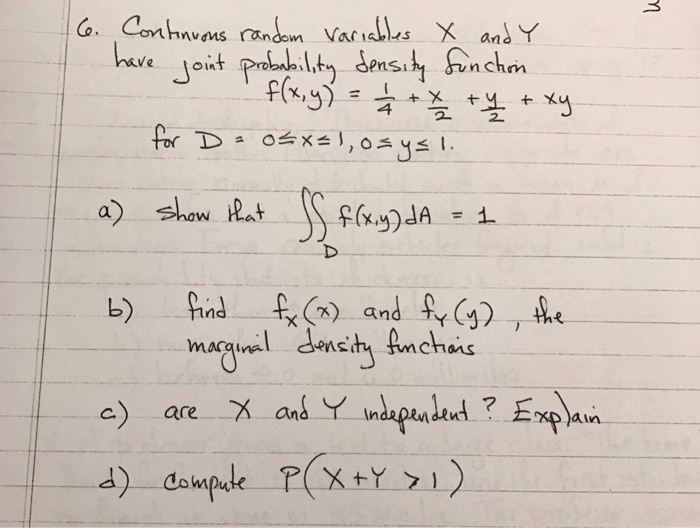 3
6. Continuous random variables X and Y
have joint probability density function
f(x,y) = 1/4 + x/2 + y/2 + xy
for D = 0≤x≤1, 0≤y≤1.
a) show that ∬_D f(x,y)dA = 1
b) find f_X(x) and f_Y(y), the
marginal density functions
c) are X and Y independent? Explain
d) compute P(X+Y>1)